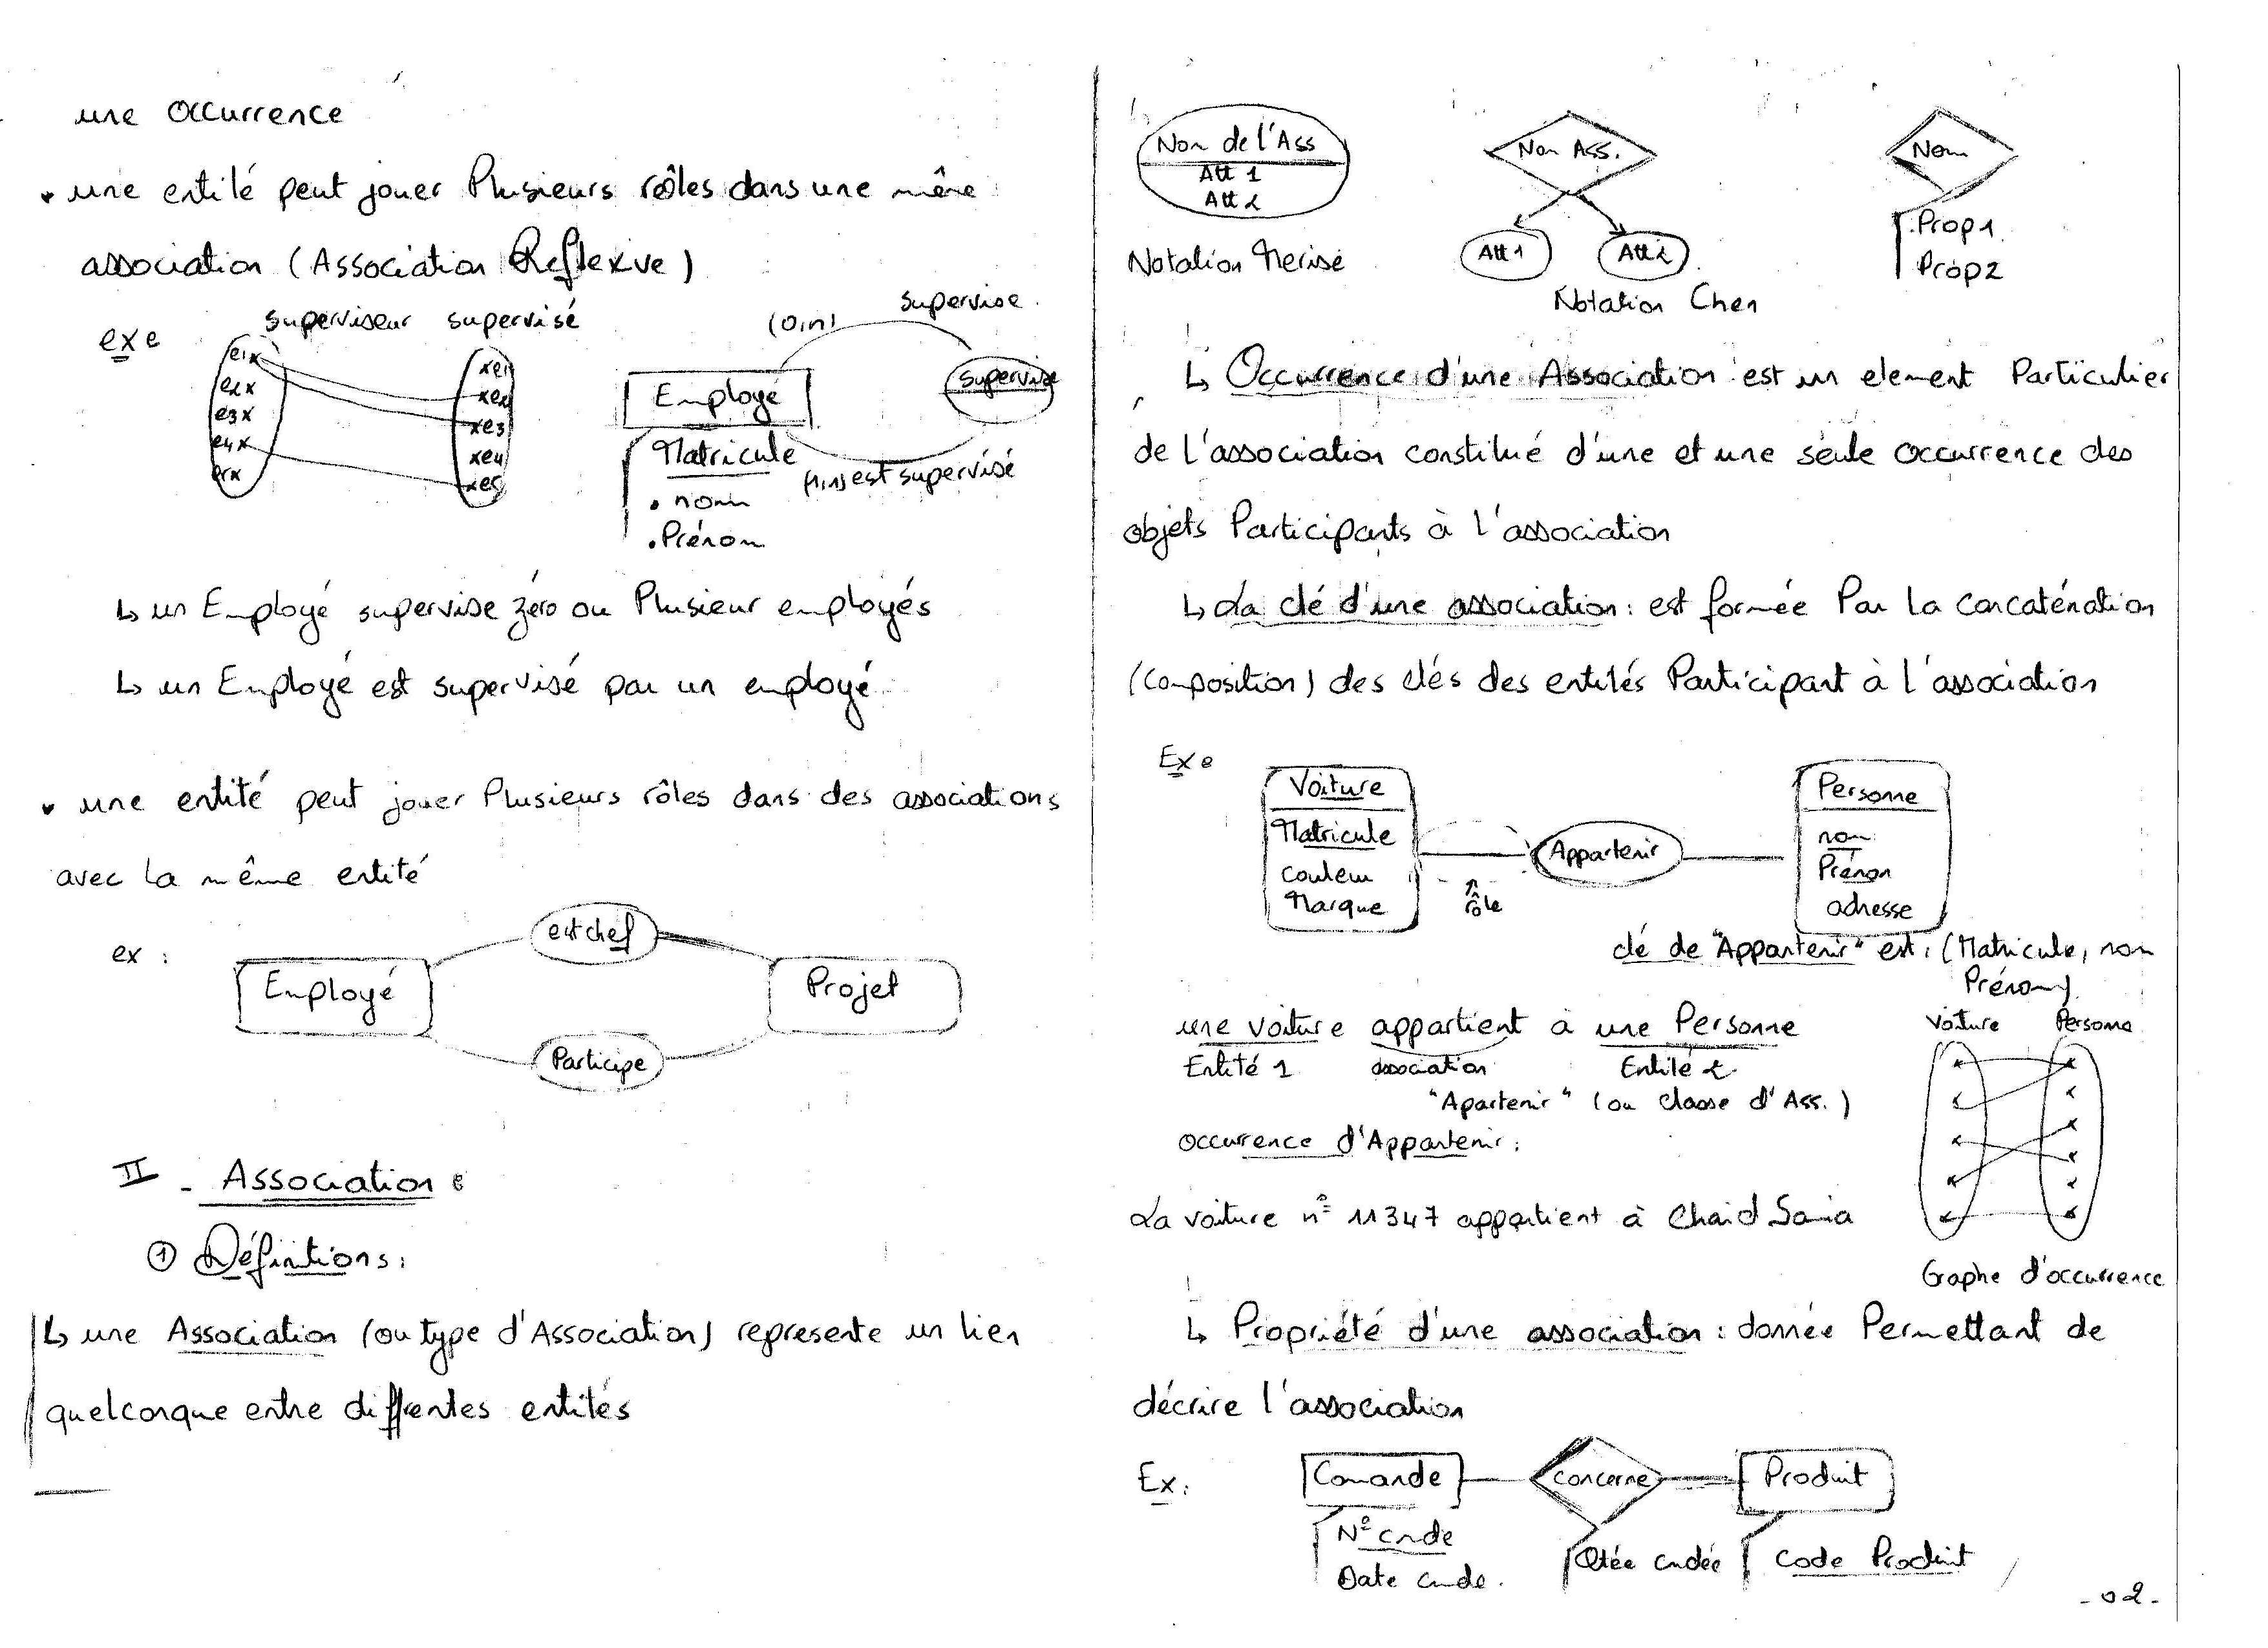 une Occurrence
• une entité peut jouer Plusieurs rôles dans une même
association (Association Reflexive)
exe
superviseur supervisé
e1x
e2x
e3x
e4x
e5x
xe1
xe2
xe3
xe4
xe5
(0,n)
supervise
Employé
supervise
Matricule
• nom
• Prénom
(1,1) est supervisé
↳ un Employé supervise zéro ou Plusieur employés
↳ un Employé est supervisé par un employé
• une entité peut jouer Plusieurs rôles dans des associations
avec la même entité
ex :
est chef
Employé
Projet
Participe
II - Association :
① Définitions :
↳ une Association (ou type d'Association) represente un lien
quelconque entre differentes entités
Nom de l'Ass
Att 1
Att 2
Notation Merise
Nom Ass.
Att 1
Att 2
Notation Chen
Nom
Prop1
Prop2
↳ Occurrence d'une Association est un element Particulier
de l'association constitué d'une et une seule occurrence des
objets Participants à l'association
↳ La clé d'une association : est formée Par la concaténation
(composition) des clés des entités Participant à l'association
Exe
Voiture
Matricule
couleur
Marque
rôle
Appartenir
Personne
nom
Prénom
adresse
clé de "Appartenir" est : (Matricule, nom
Prénom)
une voiture appartient à une Personne
Entité 1 association Entité 2
"Apartenir" (ou classe d'Ass.)
occurrence d'Appartenir :
La voiture n° 11347 appartient à Chaid Samia
Voiture Personne
Graphe d'occurrence
↳ Propriété d'une association : donnée Permettant de
décrire l'association
Ex :
Comande
concerne
Produit
N° cmde
Date cmde.
Qtée cmdée
code Produit
- 02 -